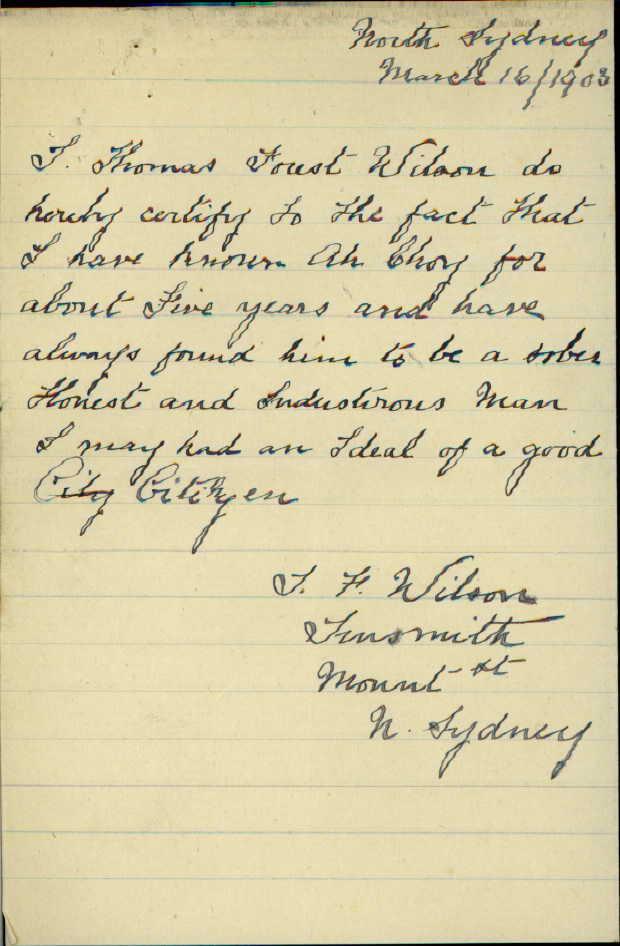 North Sydney
March 16/1903
I. Thomas Foust Wilson do
hereby certify to the fact that
I have known Ah Choy for
about Five years and have
always found him to be a sober
Honest and Industirous Man
I may had an Ideal of a good
City Citizen
T. F. Wilson
Tinsmith
Mount st
N. Sydney